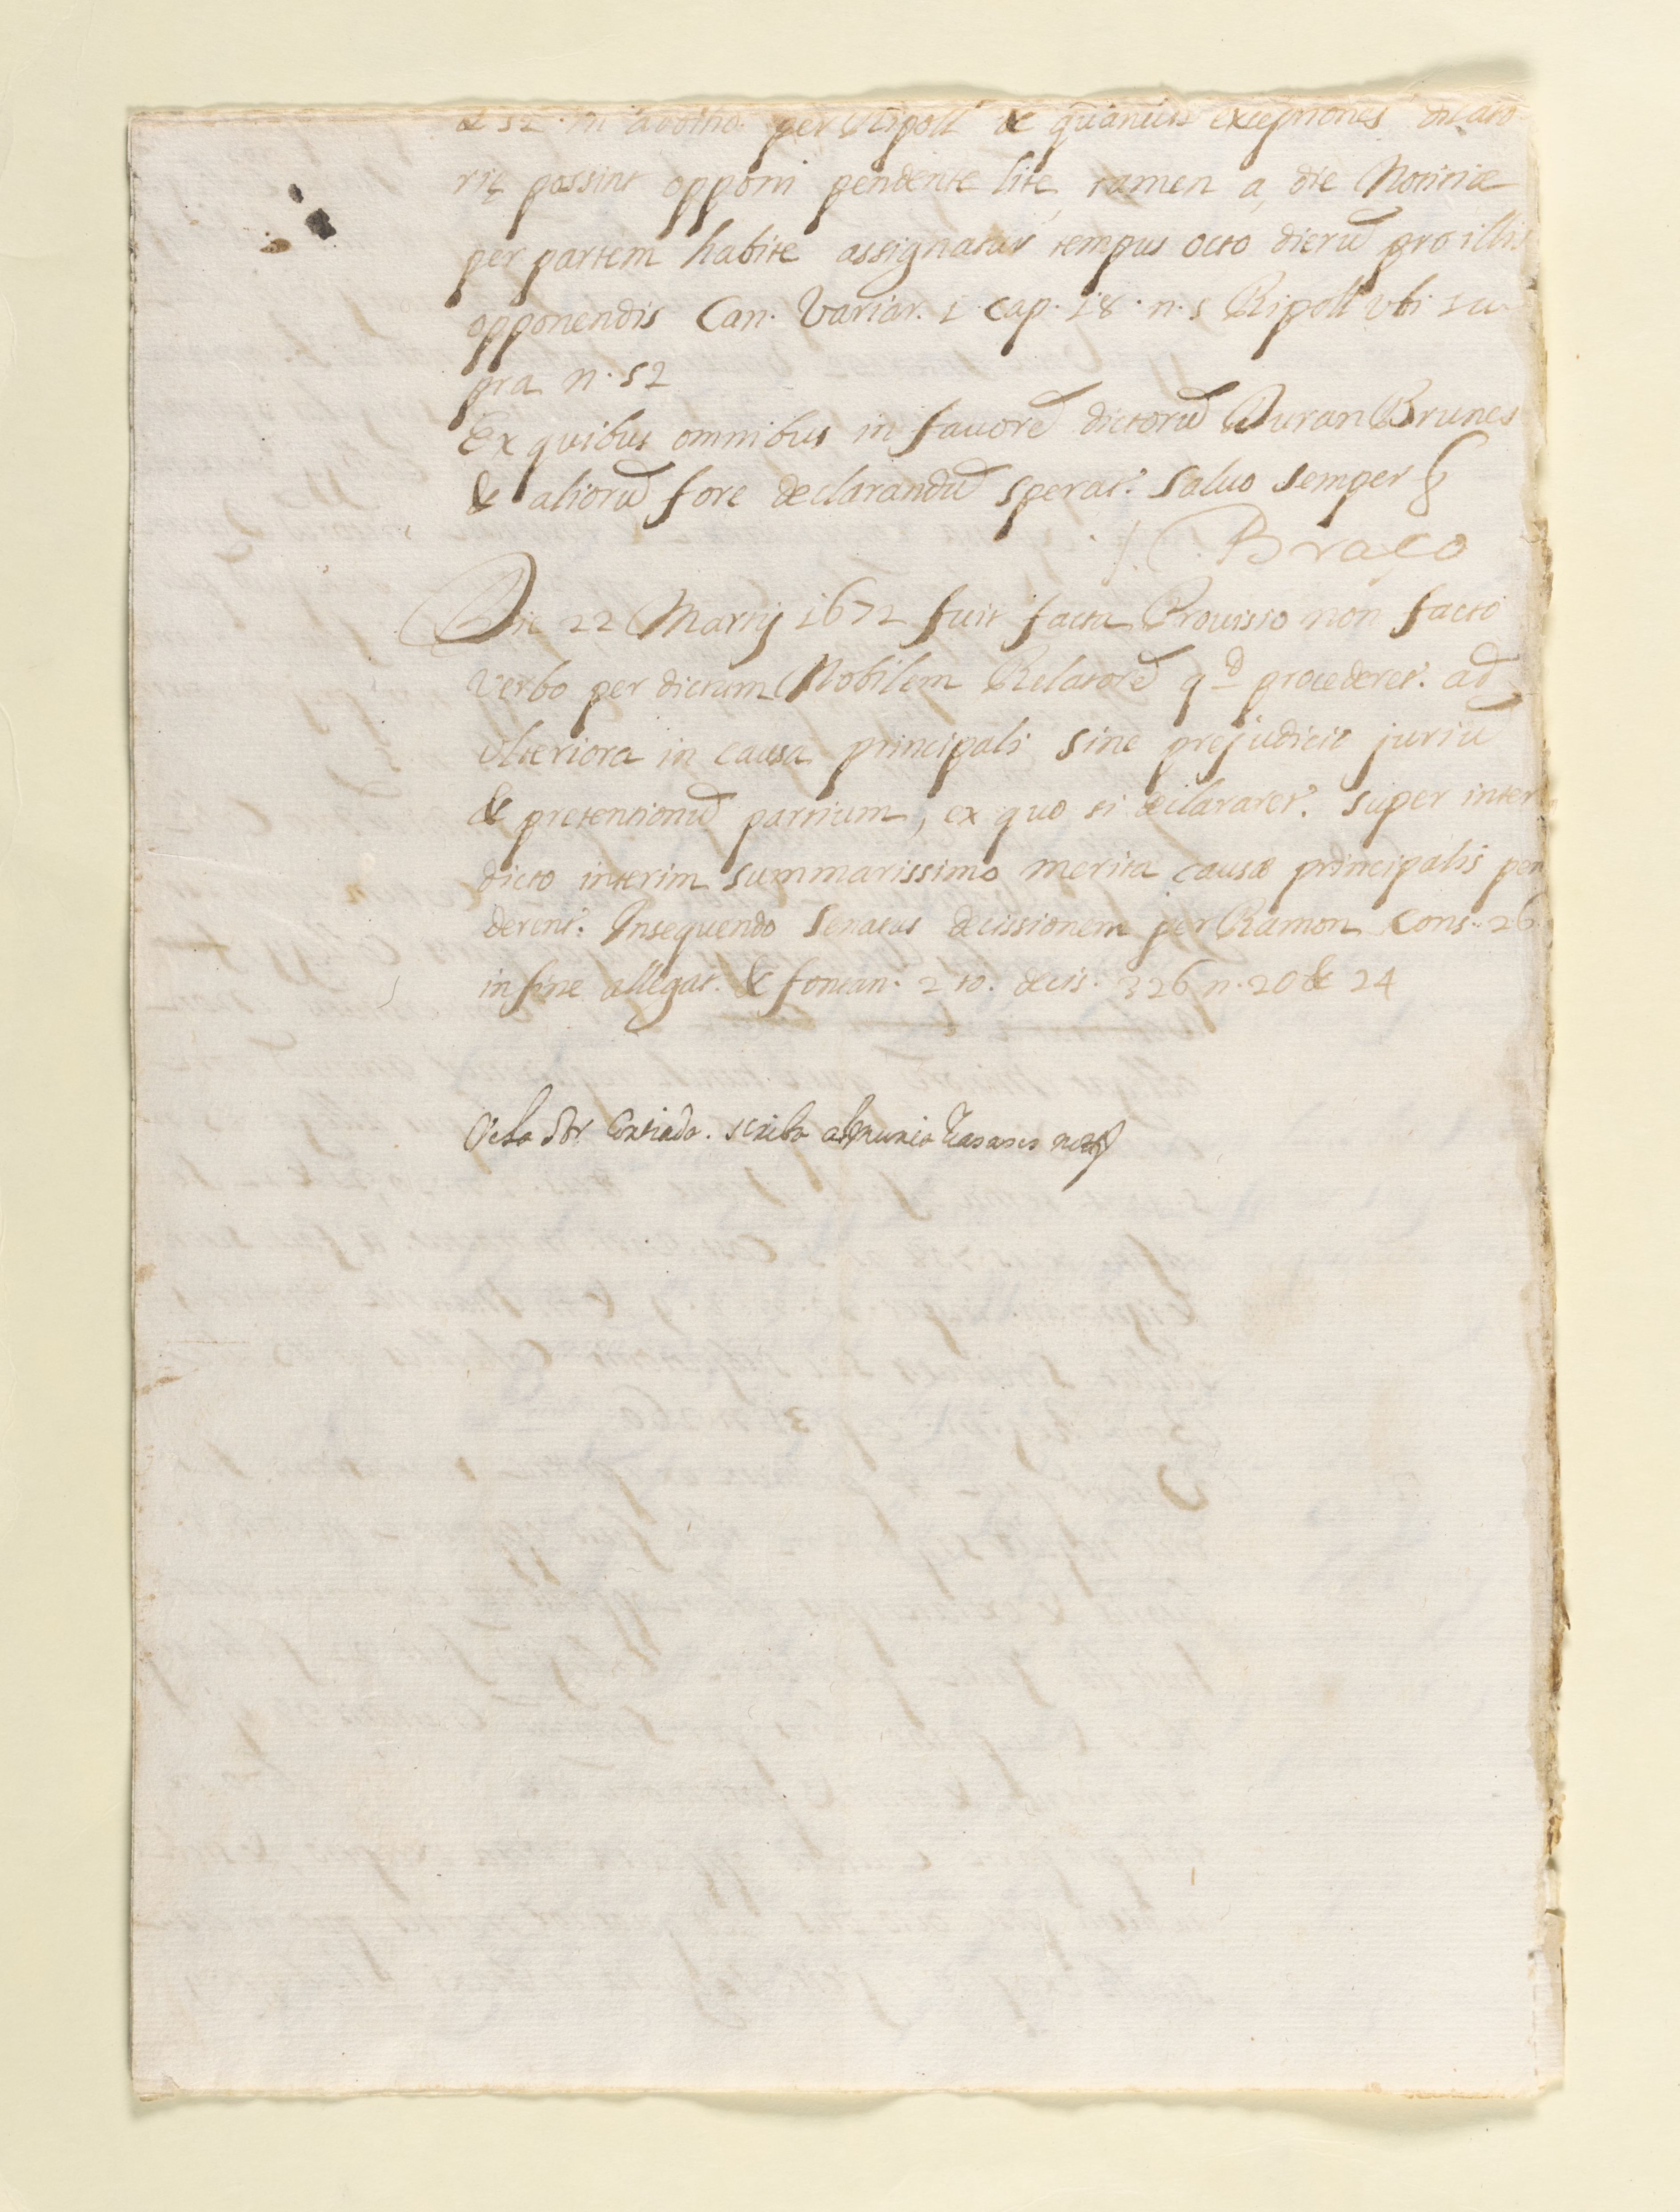 & 52. in additio. per Ripoll & quamuis exceptiones dilato
rię possint opponi pendente lite, tamen a, die Notitiæ
per partem habite assignatur tempus octo dierũ pro illis
opponendis Can. Variar. 1 cap. 18. n. 5 Ripoll vbi su
pra n. 52
Ex quibus omnibus in fauorẽ dictorũ Duran Brunes
& aliorũ fore declarandũ sperat.r Saluo semper &
Braço
Die 22 Martij 1672 fuit facta Prouisio non facto
verbo per dictum Nobilem Relatorẽ qd procederet.r ad
vlteriora in causa principali sine prejudicio juriũ
& pretentionũ partium, ex quo si declararet.r super inter
dicto interim summarissimo merita causæ principalis pen
derent.r Insequendo Senatus decissionem per Ramon Cons. 26
in fine allegat. & fontan. 2 to. decis. 326 n. 20 & 24
Cortiada. scriba